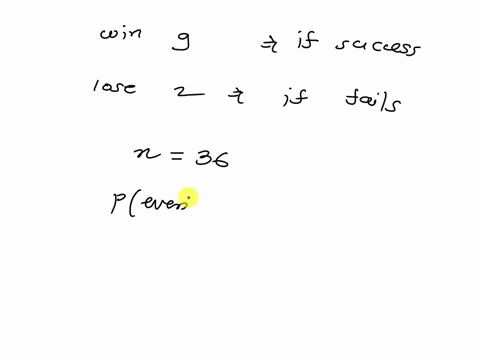 win 9 ⇒ if success
lose 2 ⇒ if fails
n = 36
P(even